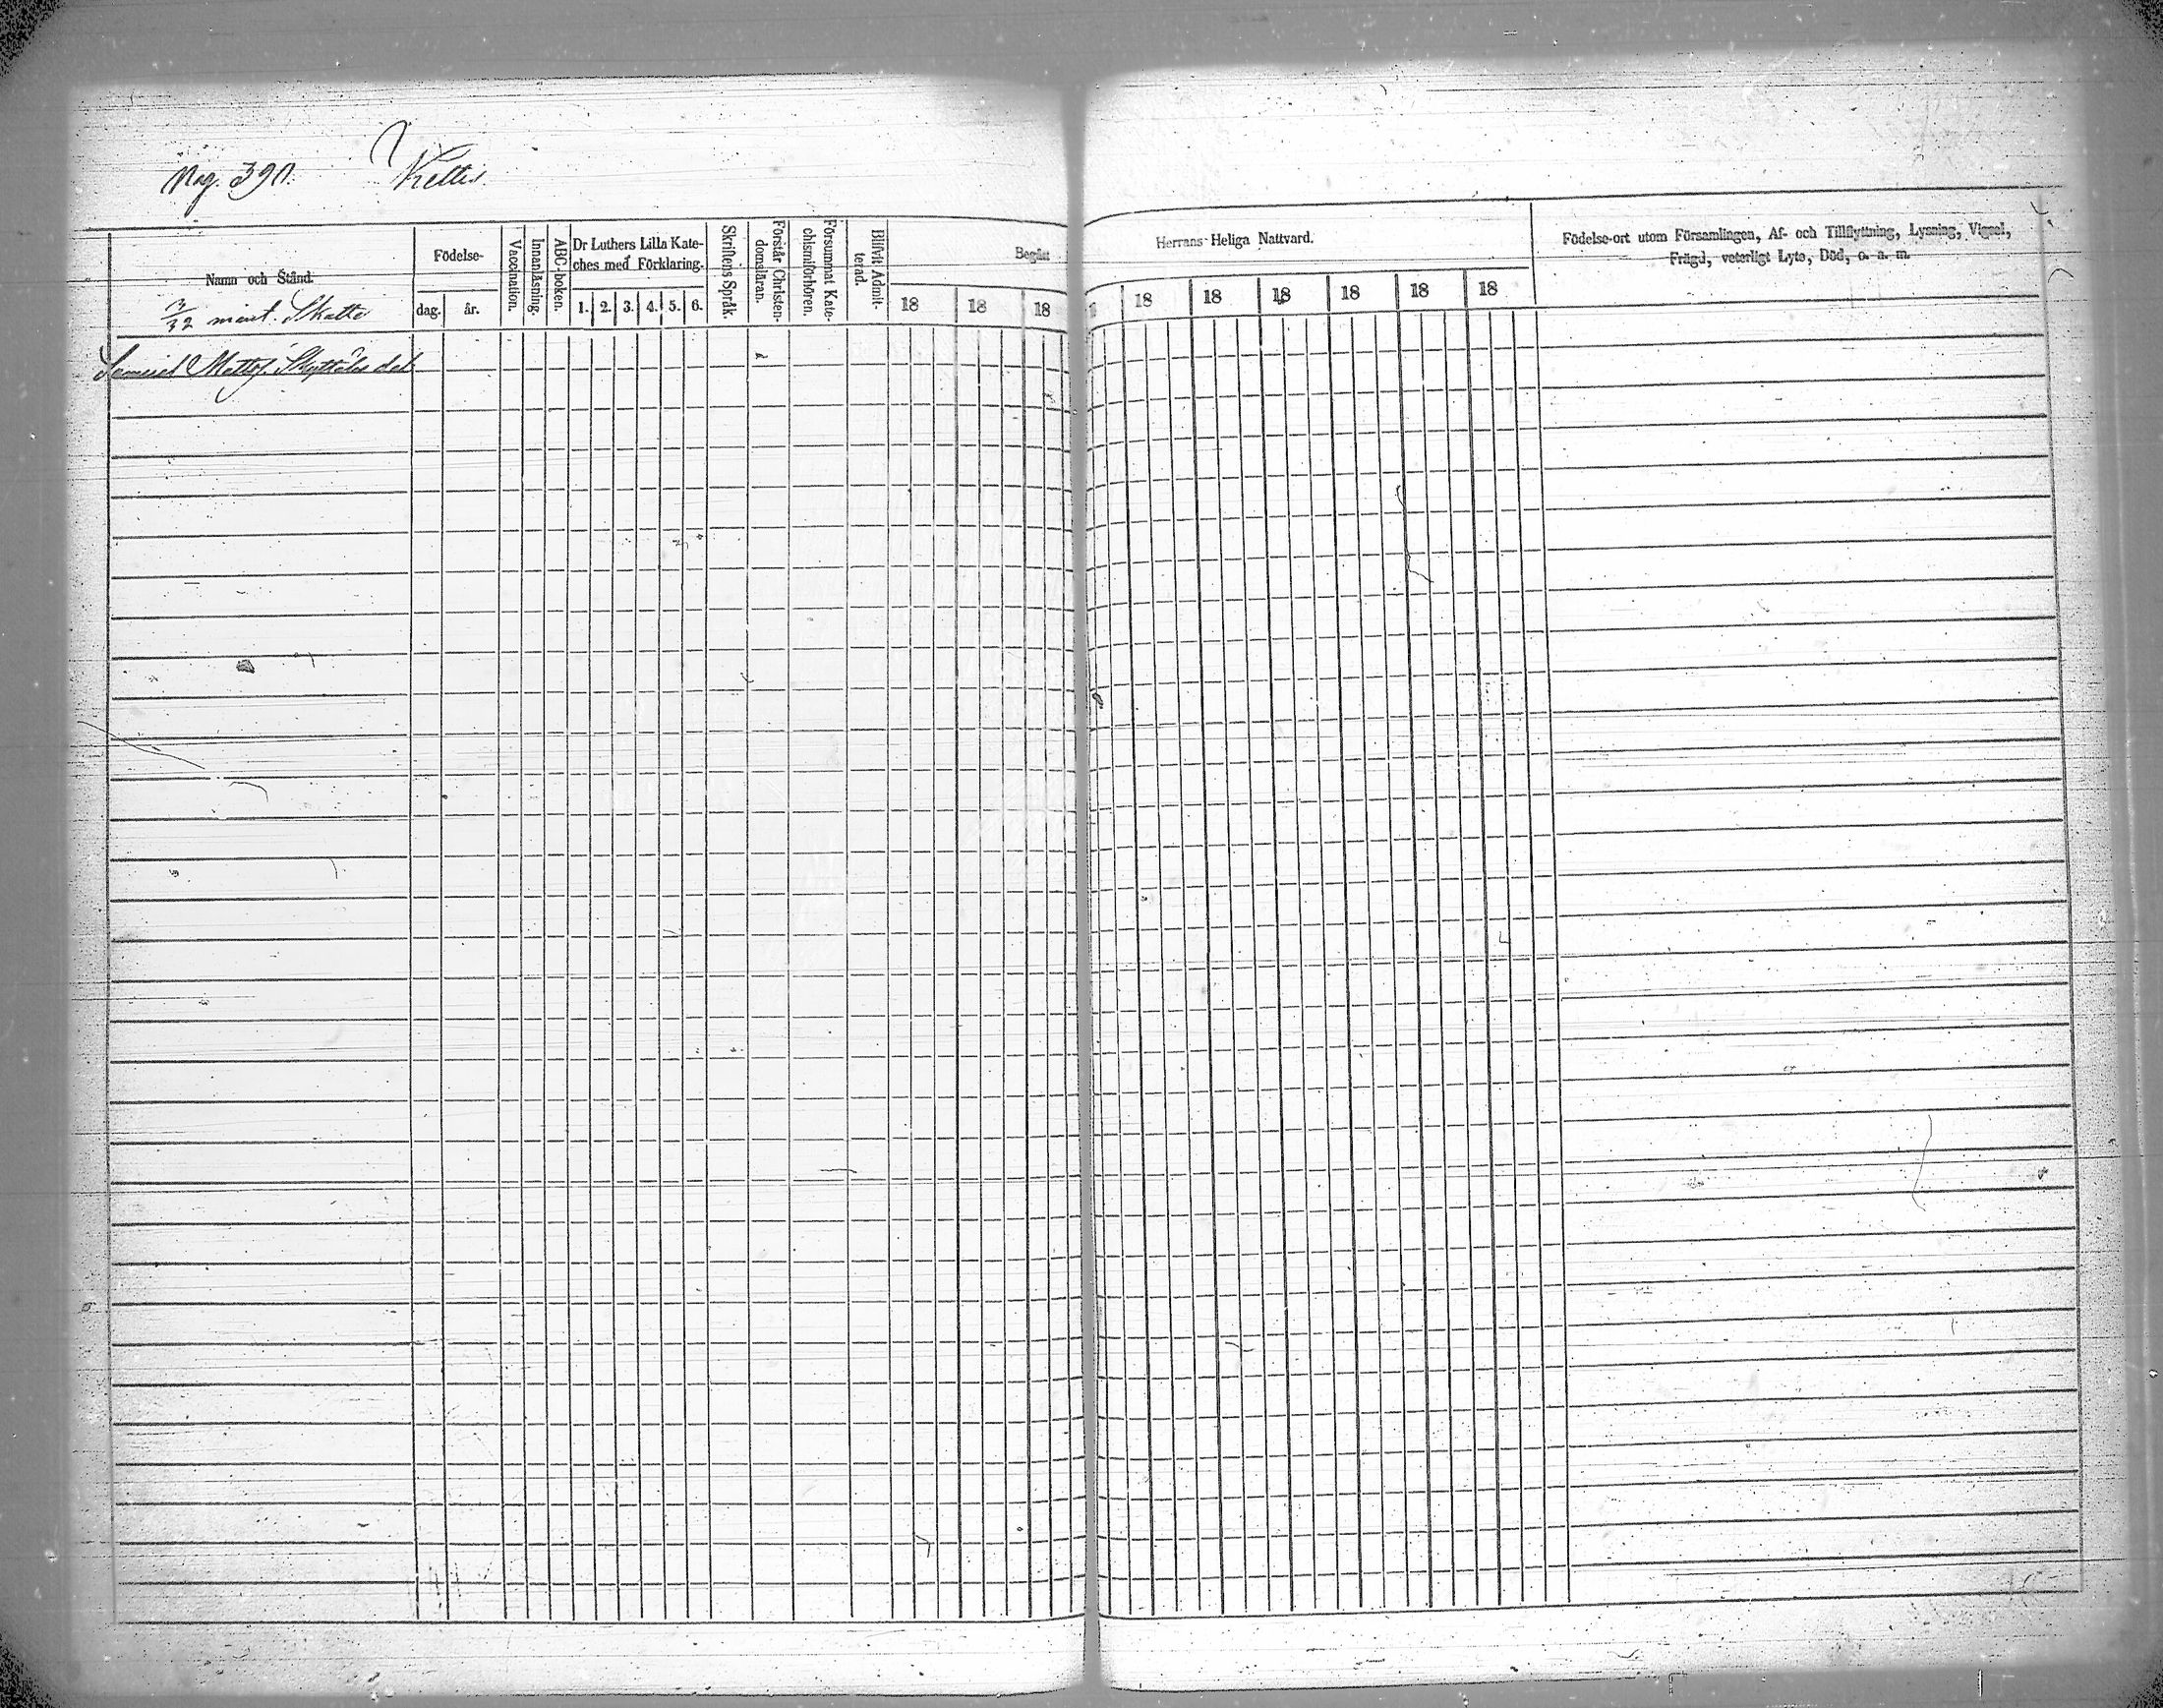 Pag. 391.
Keltis
Namn och Stånd.
7/32 mant. Skatte
Samuel Mattsf. Skyttäläs del
Födelse-
dag.
år.
Vaccination.
Innanläsning.
ABC-boken.
Dr Luthers Lilla Kate-
ches med Förklaring.
1. 2. 3. 4. 5. 6.
Skriftens Språk.
Förstår Christen-
domsläran.
Försummat Kate-
chismiförhören.
Blifvit Admit-
terad.
Begått
18 18 18
Herrans Heliga Nattvard.
18 18 18 18 18 18
Födelse-ort utom Församlingen, Af- och Tillflyttning, Lysning, Vigsel,
Frägd, veterligt Lyte, Död, o. a. m.